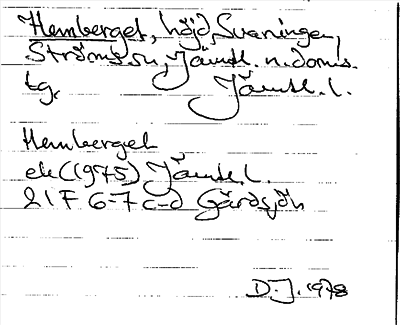 Hemberget, höjd, Svaningen,
Ströms sn, Jämtl. n. doms.
tg, Jämtl. l.
Hemberget
ek (1975) Jämtl. l.
21 F 6-7 c-d Gärdsjön
D. J. 1978